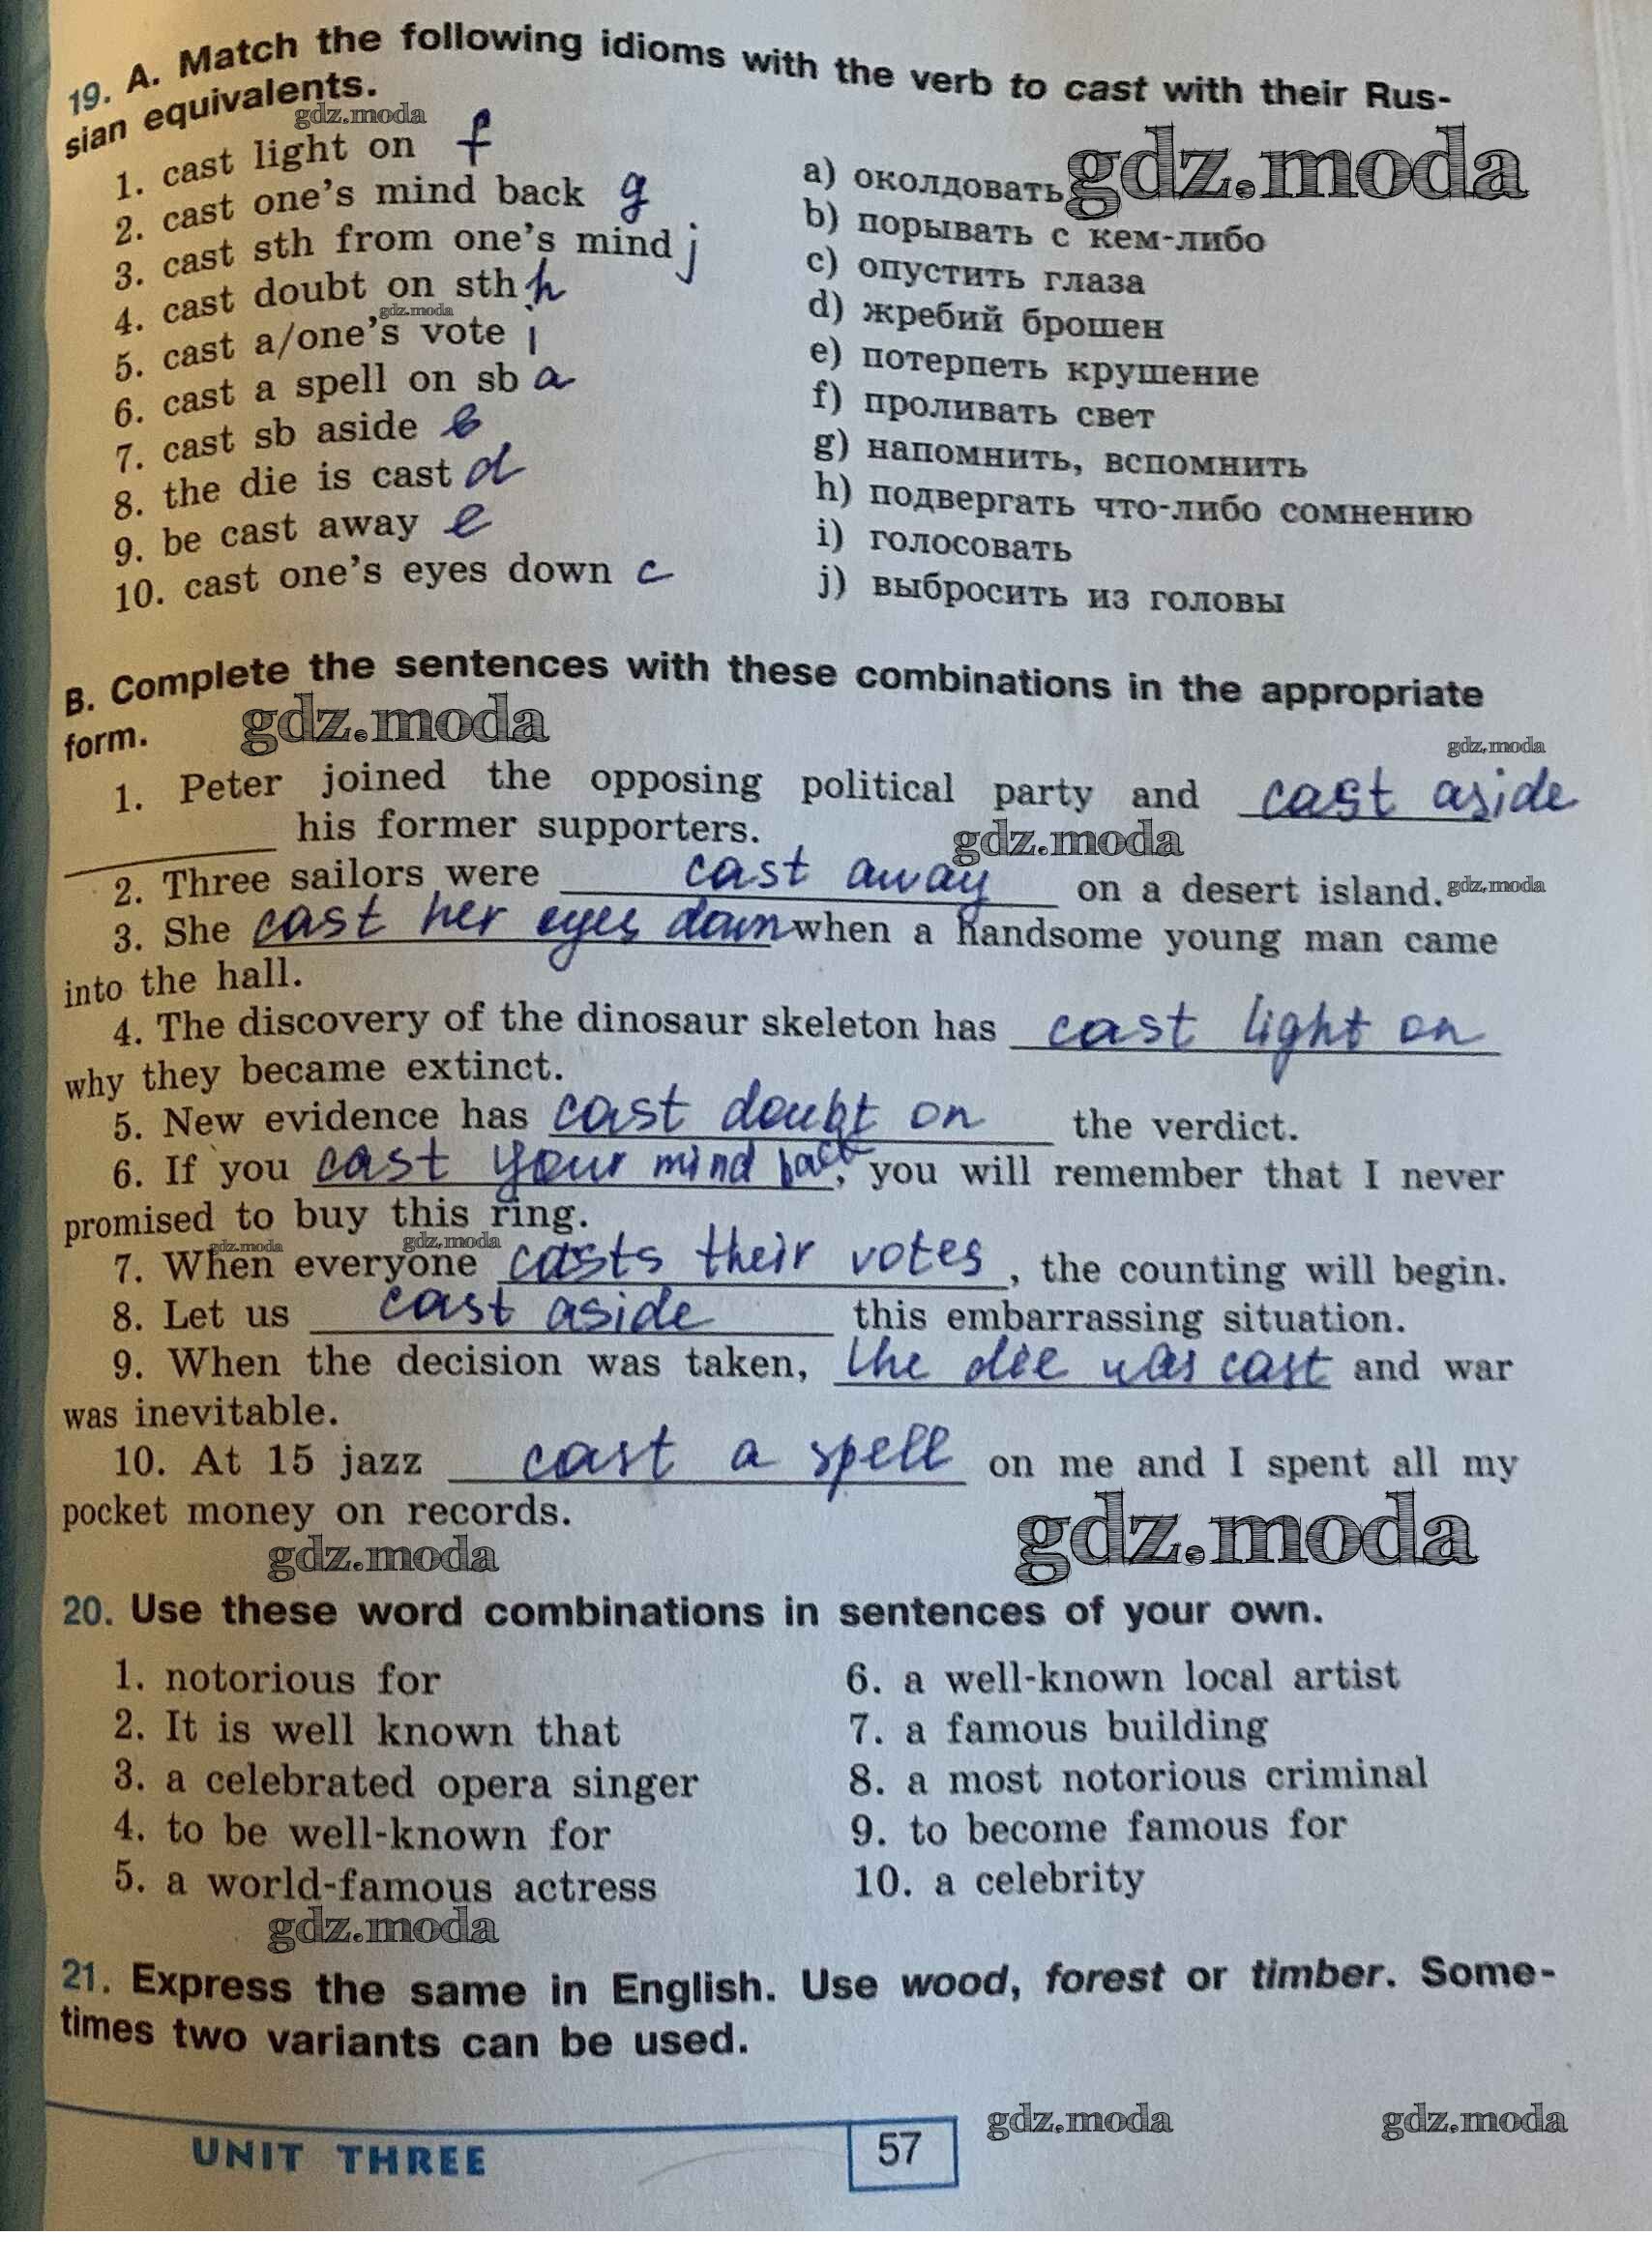 19. A. Match the following idioms with the verb to cast with their Rus-
sian equivalents.
gdz.moda
gdz.moda
1. cast light on f
2. cast one's mind back g
3. cast sth from one's mind j
4. cast doubt on sth h
gdz.moda
5. cast a/one's vote i
6. cast a spell on sb a
7. cast sb aside b
8. the die is cast d
9. be cast away e
10. cast one's eyes down c
a) околдовать
b) порывать с кем-либо
c) опустить глаза
d) жребий брошен
e) потерпеть крушение
f) проливать свет
g) напомнить, вспомнить
h) подвергать что-либо сомнению
i) голосовать
j) выбросить из головы
B. Complete the sentences with these combinations in the appropriate
form.
gdz.moda
gdz.moda
1. Peter joined the opposing political party and cast aside
his former supporters.
gdz.moda
2. Three sailors were cast away on a desert island.
gdz.moda
3. She cast her eyes down when a handsome young man came
into the hall.
4. The discovery of the dinosaur skeleton has cast light on
why they became extinct.
5. New evidence has cast doubt on the verdict.
6. If you cast your mind back, you will remember that I never
promised to buy this ring.
gdz.moda
gdz.moda
7. When everyone casts their votes, the counting will begin.
8. Let us cast aside this embarrassing situation.
9. When the decision was taken, the die was cast and war
was inevitable.
10. At 15 jazz cast a spell on me and I spent all my
pocket money on records.
gdz.moda
gdz.moda
20. Use these word combinations in sentences of your own.
1. notorious for
2. It is well known that
3. a celebrated opera singer
4. to be well-known for
5. a world-famous actress
6. a well-known local artist
7. a famous building
8. a most notorious criminal
9. to become famous for
10. a celebrity
gdz.moda
21. Express the same in English. Use wood, forest or timber. Some-
times two variants can be used.
UNIT THREE
57
gdz.moda
gdz.moda